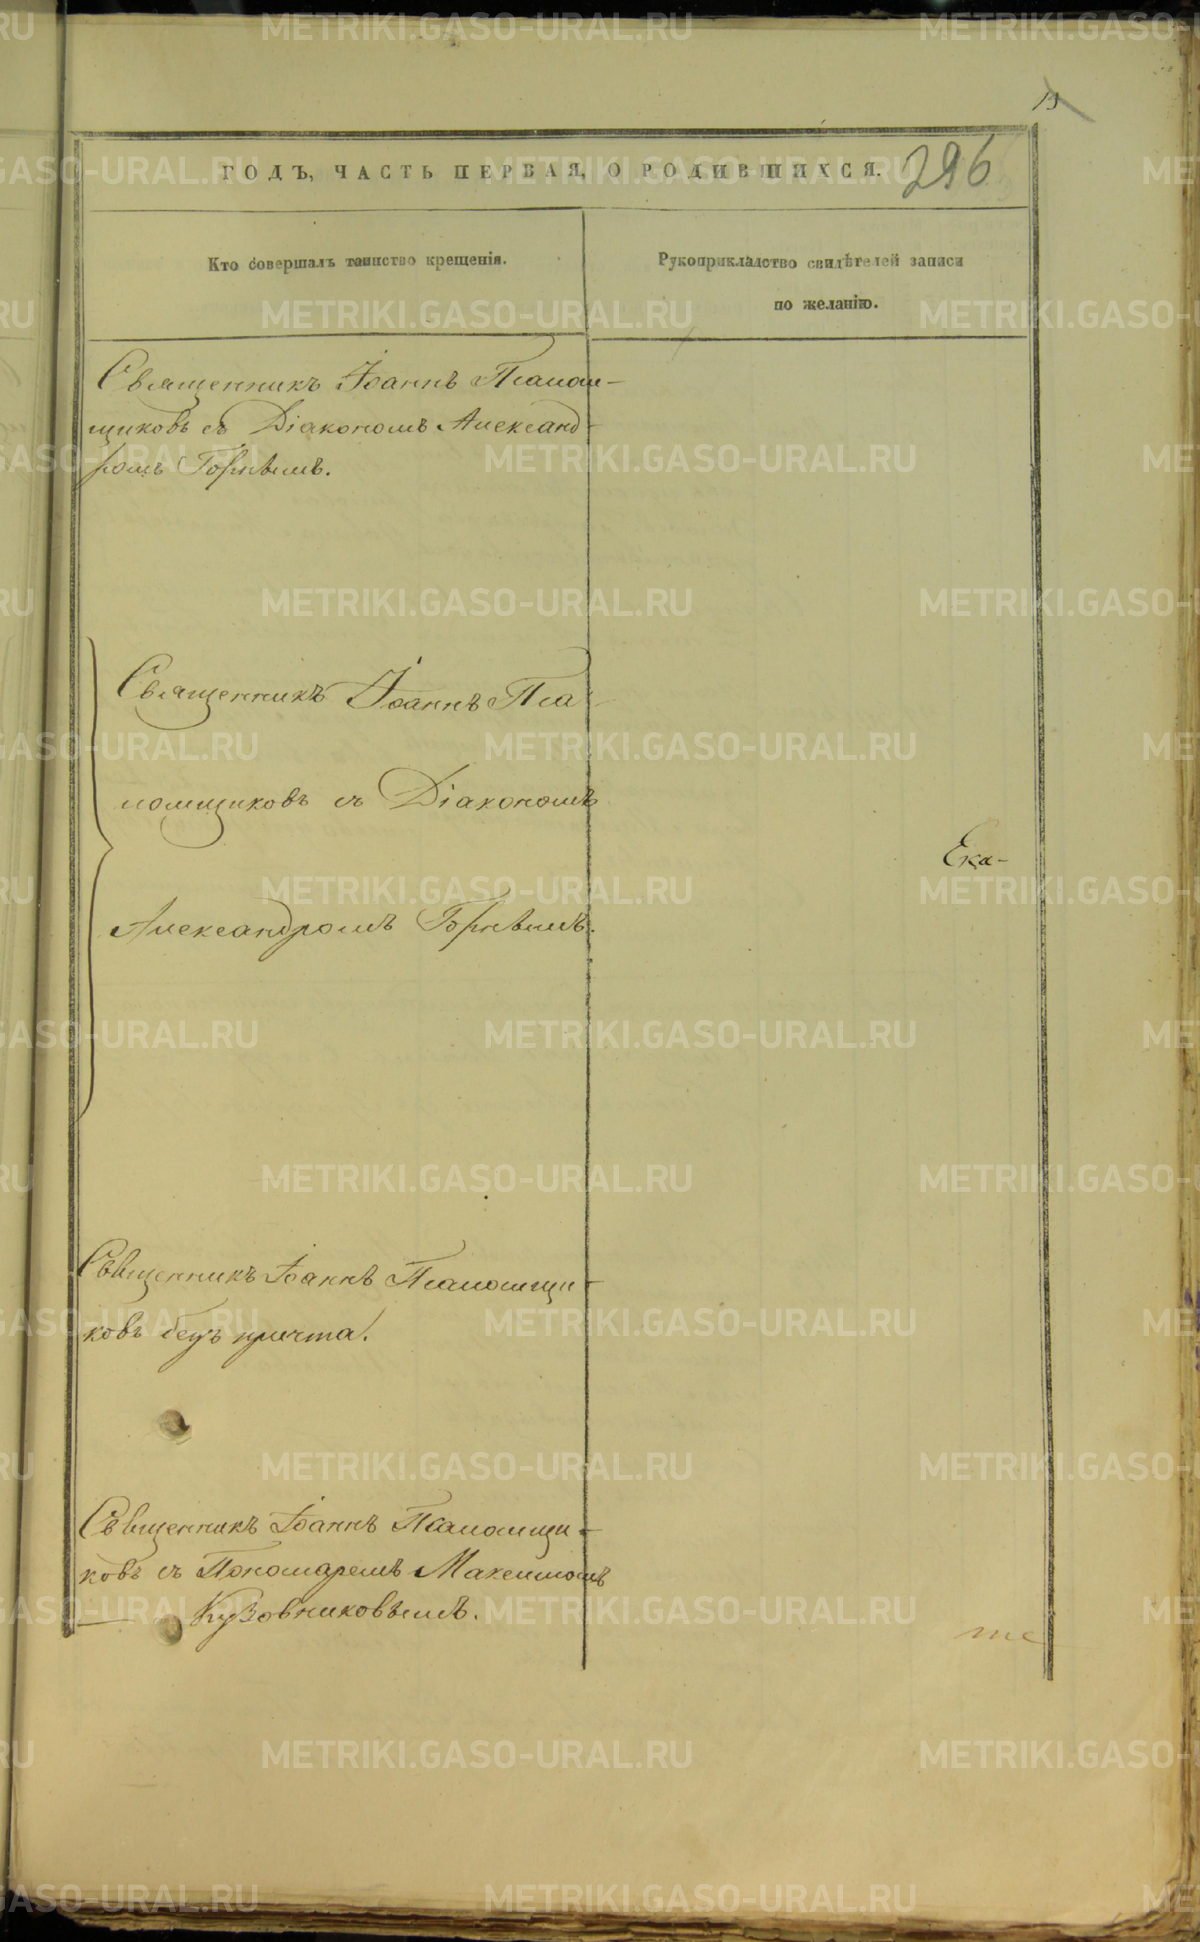 19
ГОДЪ, ЧАСТЬ ПЕРВАЯ, О РОДИВШИХСЯ.
296
Кто совершалъ таинство крещенія.
Рукоприкладство свидѣтелей записи
по желанію.
Священникъ Іоаннъ Псалом-
щиковъ съ Діакономъ Александ-
ромъ Горнѣимъ.
Священникъ Іоаннъ Пса-
ломщиковъ съ Діакономъ
Ека-
Александромъ Горнѣимъ.
Священникъ Іоаннъ Псаломщи-
ковъ безъ причта.
Священникъ Іоаннъ Псаломщи-
ковъ съ Пономаремъ Максимомъ
Кузовниковымъ.
те
METRIKI.GASO-URAL.RU